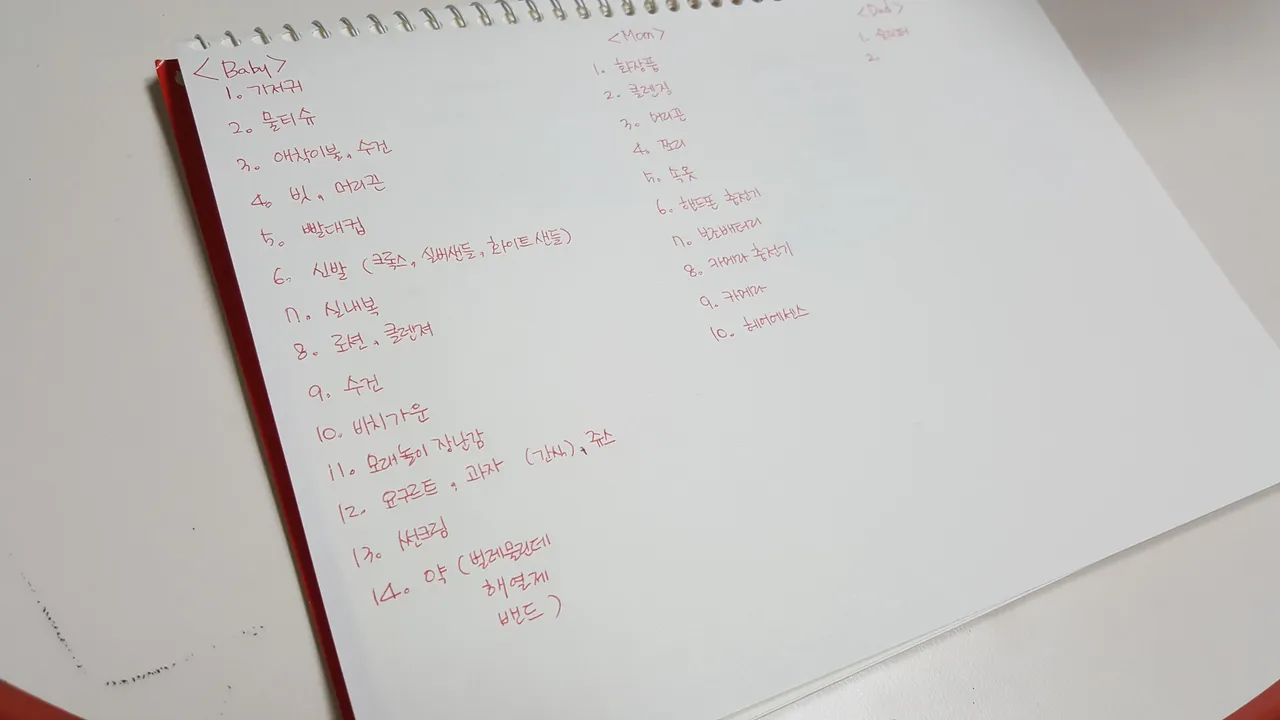 <Baby>
1. 기저귀
2. 물티슈
3. 애착이불, 수건
4. 빗, 머리끈
5. 빨대컵
6. 신발 (크록스, 실버샌들, 화이트샌들)
7. 실내복
8. 로션, 클렌져
9. 수건
10. 비치가운
11. 모래놀이 장난감
12. 요구르트, 과자 (간식), 쥬스
13. 썬크림
14. 약 (벌레물린데
해열제
밴드)
<Mom>
1. 화장품
2. 클렌징
3. 머리끈
4.
5. 속옷
6. 핸드폰 충전기
7. 보조배터리
8. 카메라 충전기
9. 카메라
10. 헤어에센스
<Dad>
1.
2.